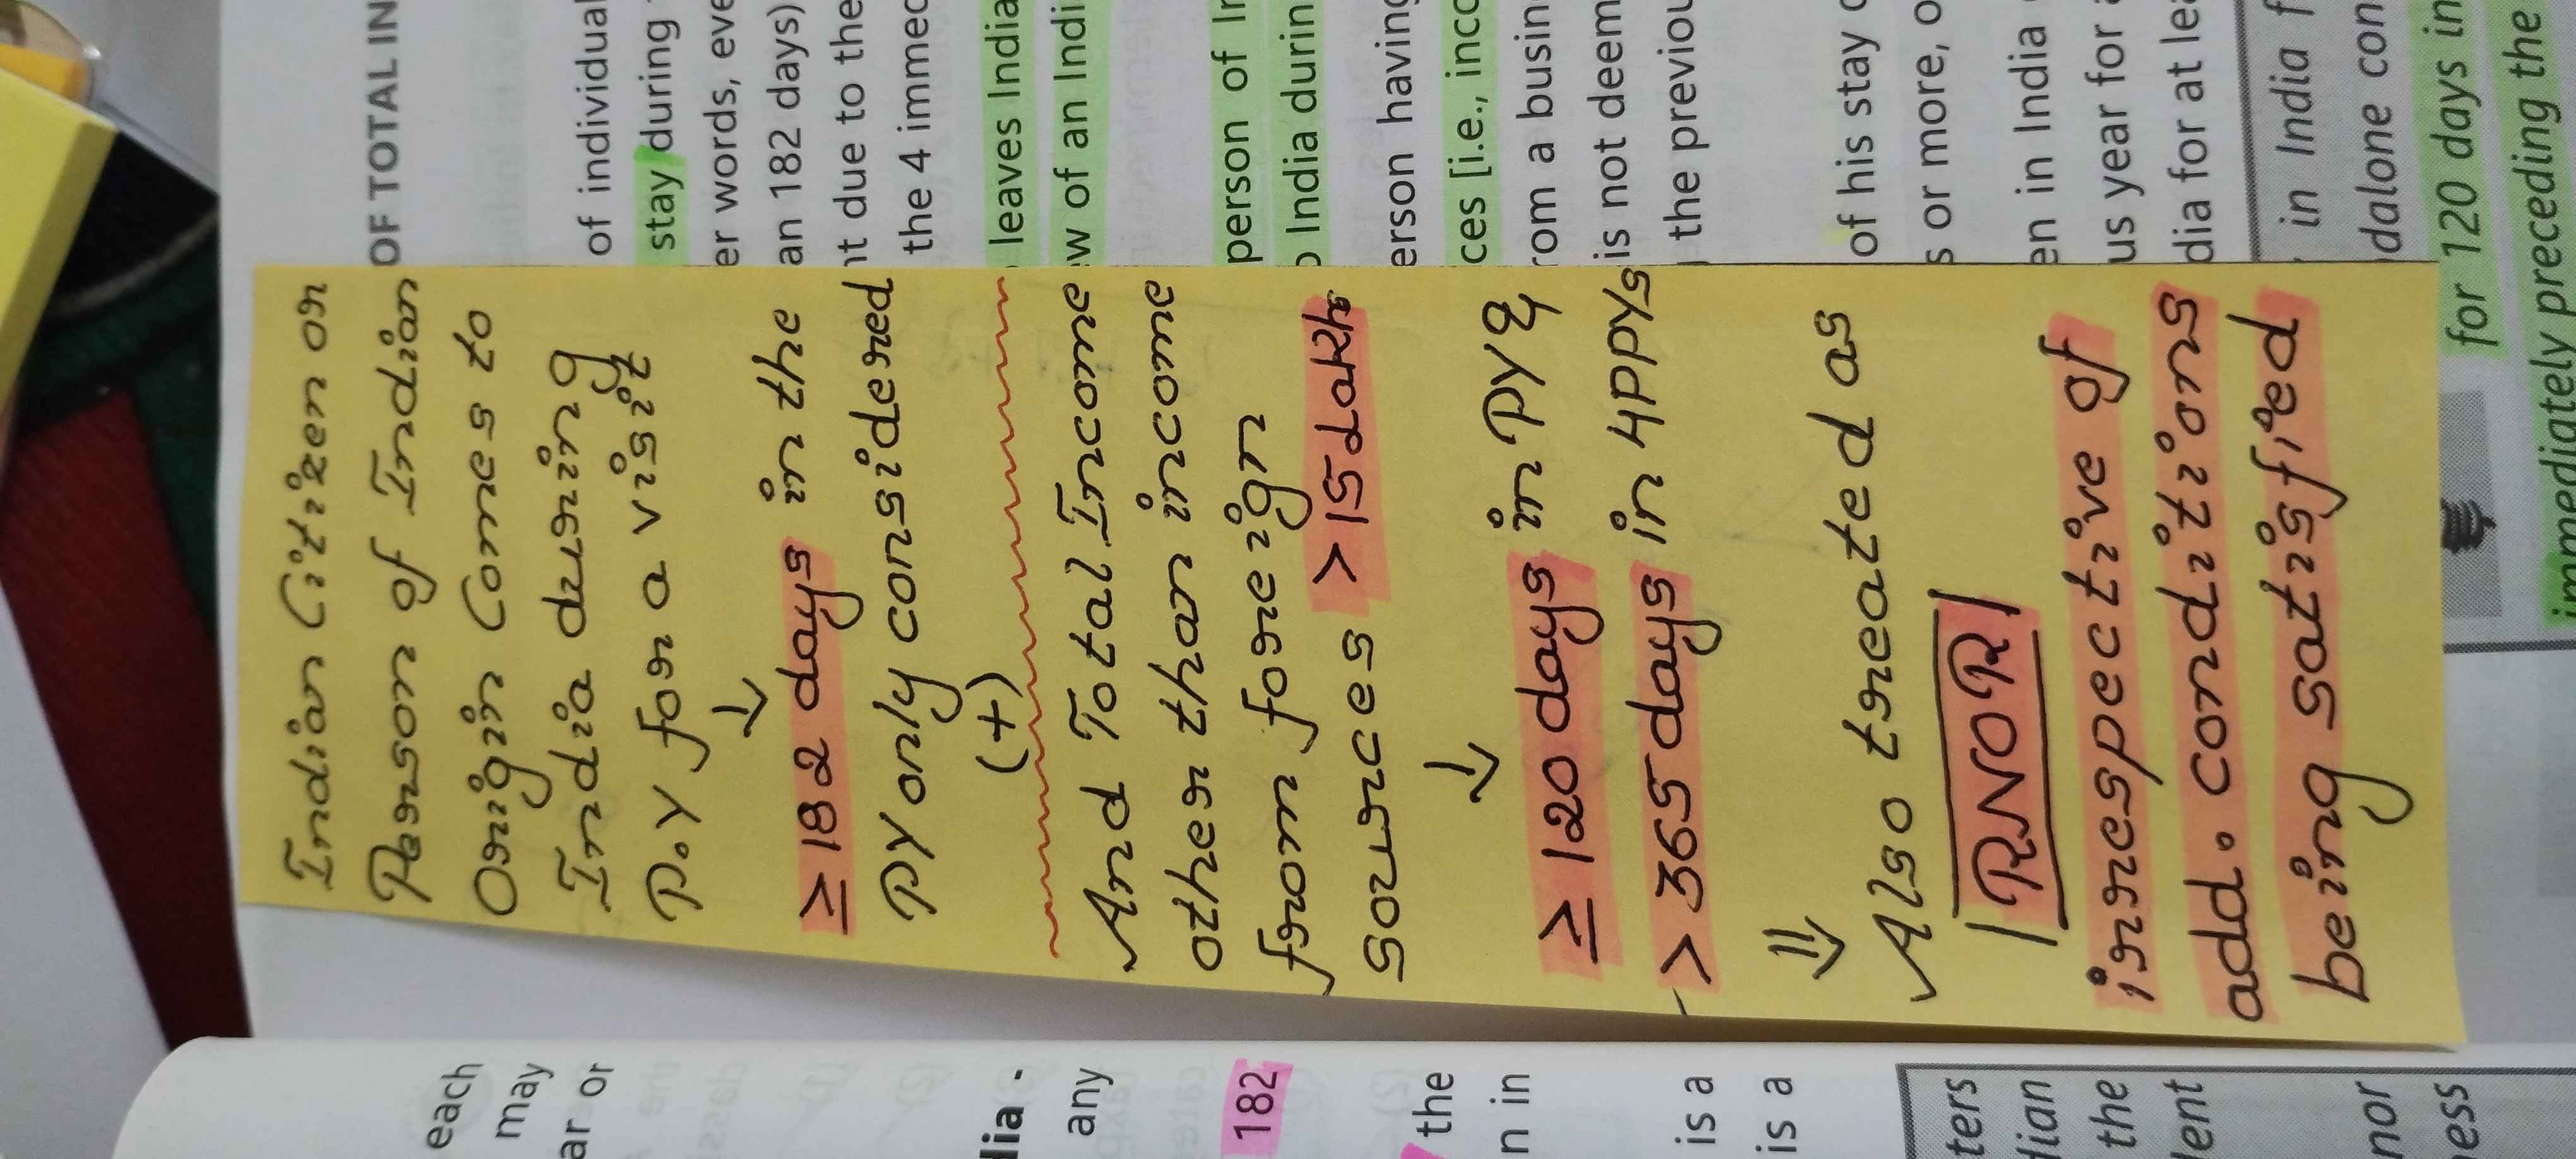 OF TOTAL IN
of individual
stay during
er words, eve
an 182 days)
nt due to the
the 4 immed
leaves India
w of an Indi
person of In
o India durin
erson having
ces [i.e., inco
rom a busin
is not deem
the previou
of his stay
s or more, o
en in India
us year for
dia for at lea
in India f
dalone con
for 120 days in
immediately preceding the
Indian Citizen or
Person of Indian
Origin Comes to
India during
P.Y for a visit
↓
≥ 182 days in the
PY only considered
(+)
And Total Income
other than income
from foreign
sources > 15 lakh
↓
≥ 120 days in PY &
> 365 days in 4PPYs
⇓
Also treated as
RNOR
irrespective of
add. conditions
being satisfied
each
may
ar or
dia -
any
182
the
n in
is a
is a
ters
dian
the
dent
nor
ess